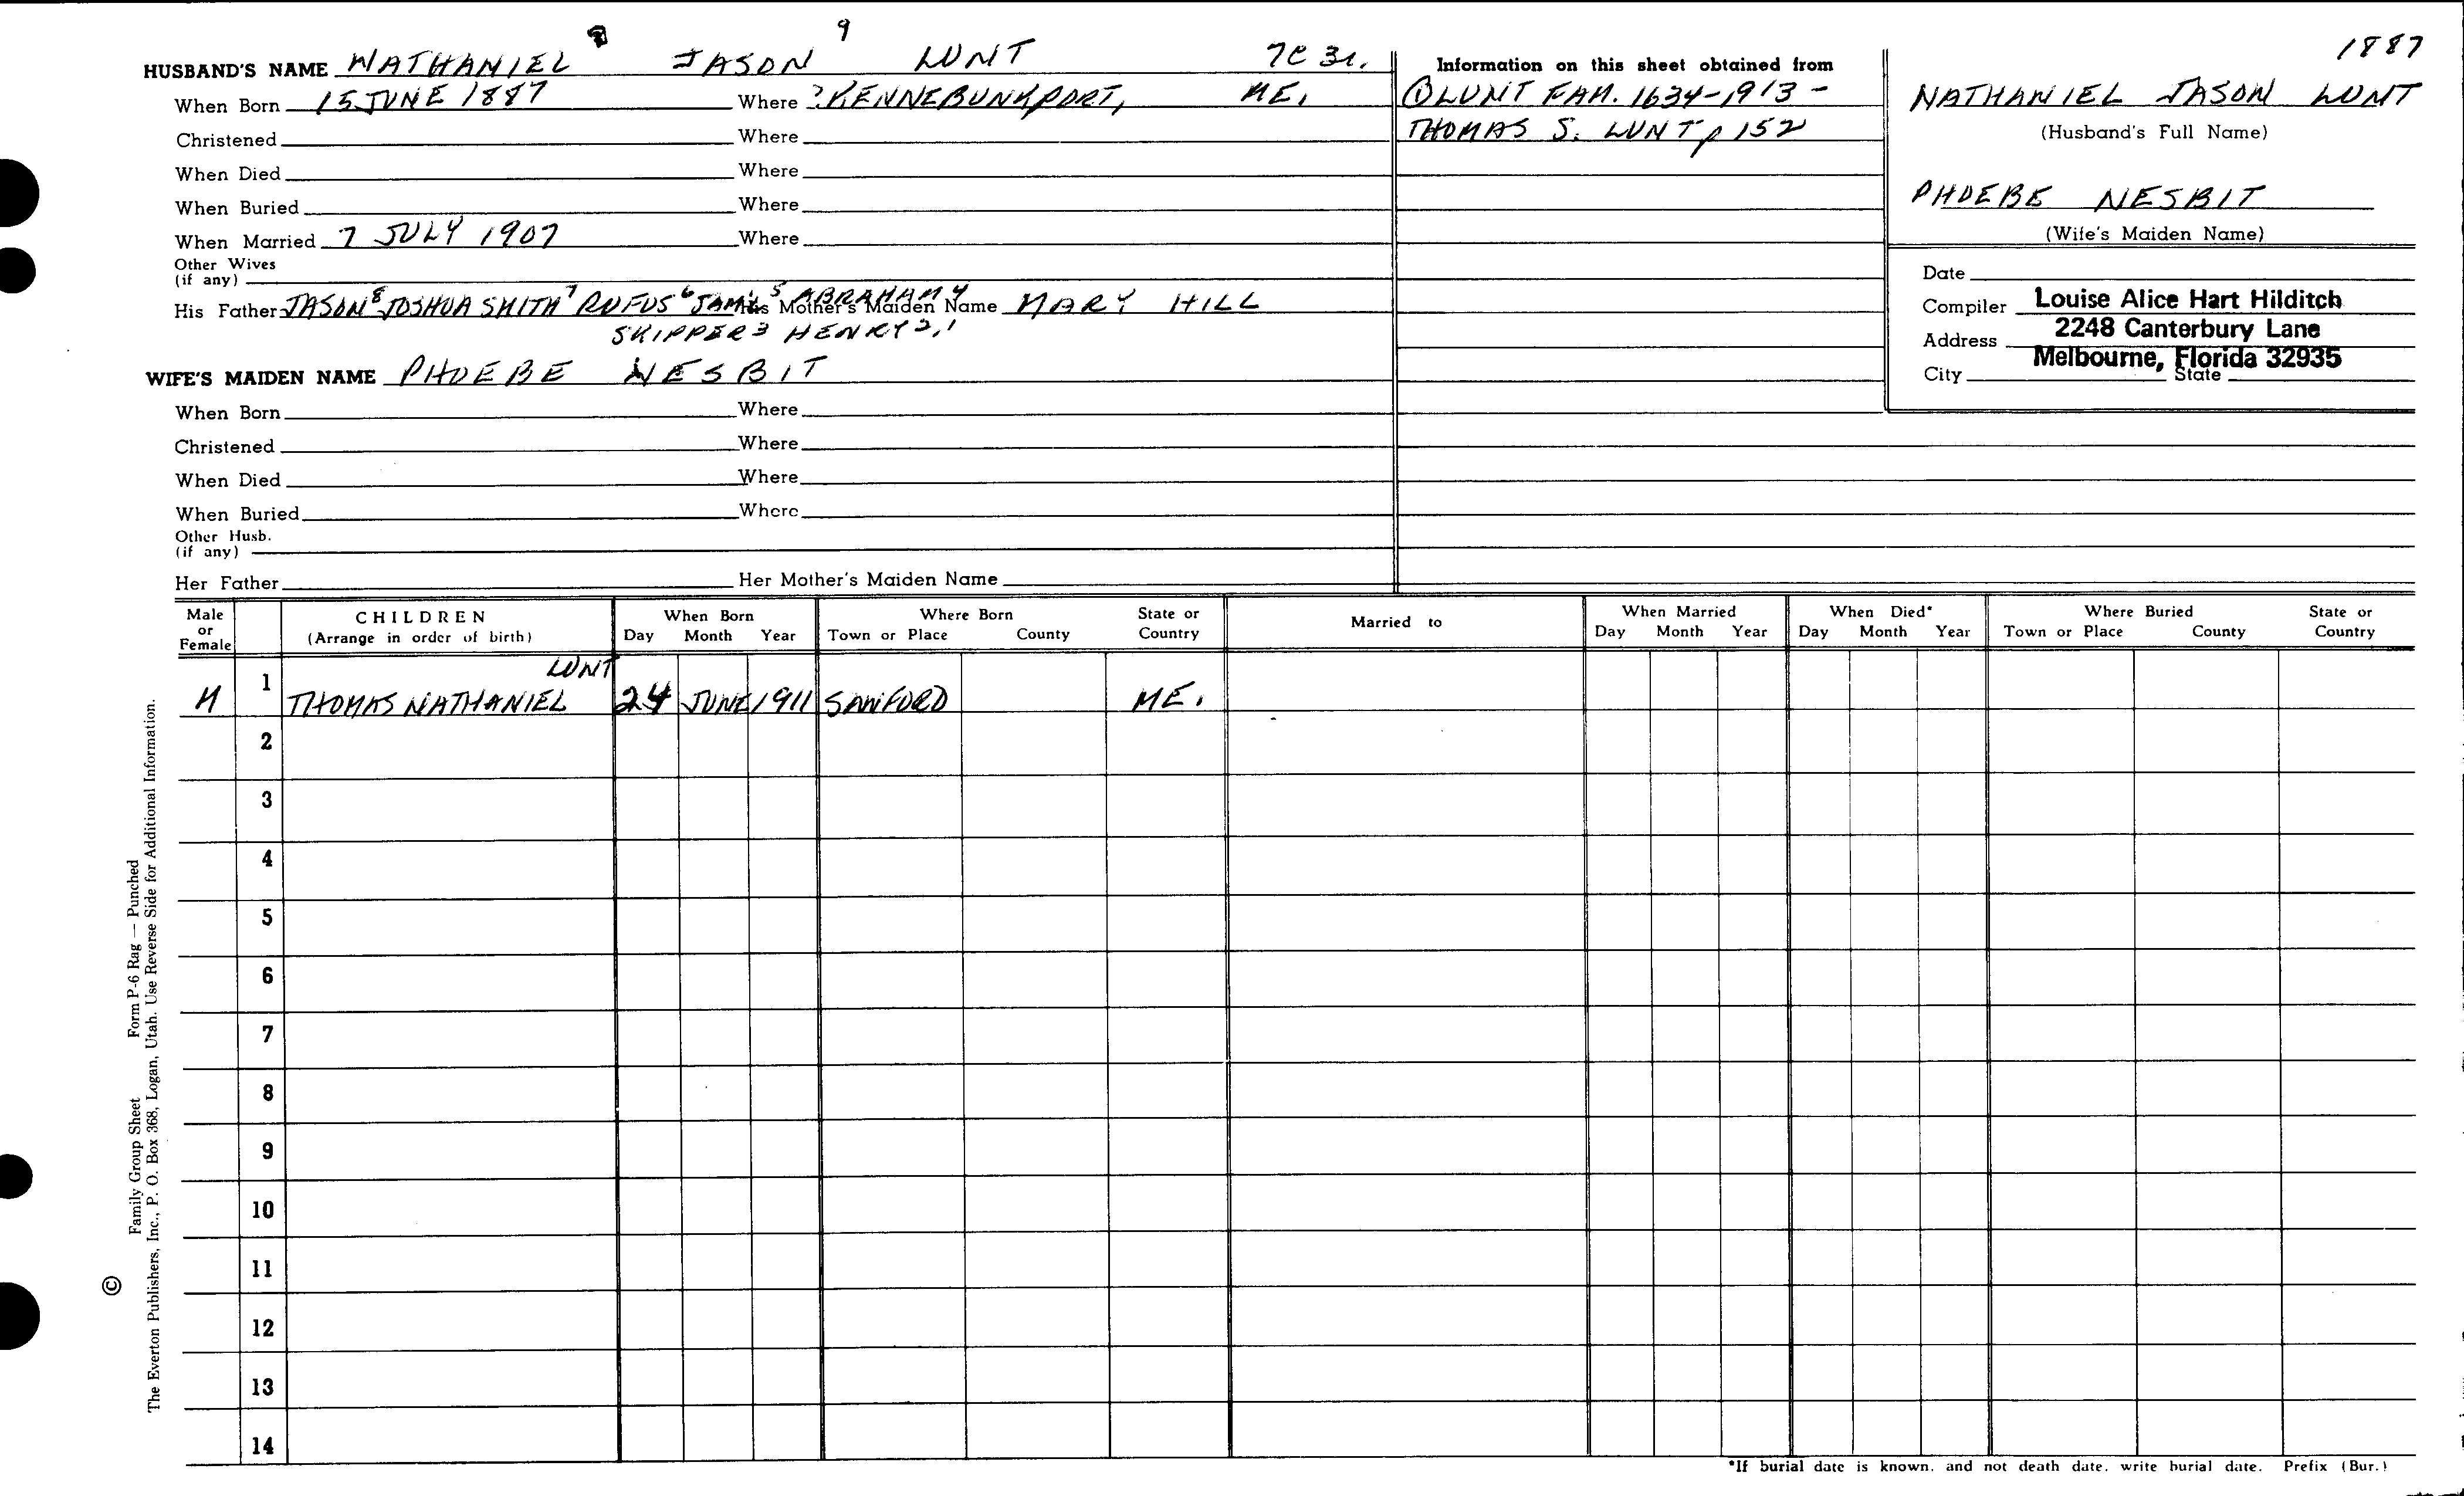 9
HUSBAND'S NAME NATHANIEL JASON LUNT 7C 3r.
When Born 15 JUNE 1887 Where ? KENNEBUNKPORT, ME.
Christened Where
When Died Where
When Buried Where
When Married 7 JULY 1907 Where
Other Wives
(if any)
His Father JASON 8 JOSHUA SMITH 7 RUFUS 6 JAM'S 5 ABRAHAM 4 His Mother's Maiden Name MARY HILL
SKIPPER 3 HENRY 2,1
WIFE'S MAIDEN NAME PHOEBE NESBIT
When Born Where
Christened Where
When Died Where
When Buried Where
Other Husb.
(if any)
Her Father Her Mother's Maiden Name
Information on this sheet obtained from
① LUNT FAM. 1634-1913 -
THOMAS S. LUNT, p 152
1887
NATHANIEL JASON LUNT
(Husband's Full Name)
PHOEBE NESBIT
(Wife's Maiden Name)
Date
Compiler Louise Alice Hart Hilditch
Address 2248 Canterbury Lane
Melbourne, Florida 32935
City State
Male or Female CHILDREN (Arrange in order of birth) When Born Day Month Year Where Born Town or Place County State or Country Married to When Married Day Month Year When Died* Day Month Year Where Buried Town or Place County State or Country
LUNT
M 1 THOMAS NATHANIEL 24 JUNE 1911 SANFORD ME.
2
3
4
5
6
7
8
9
10
11
12
13
14
*If burial date is known, and not death date, write burial date. Prefix (Bur.)
Family Group Sheet Form P-6 Rag — Punched
© The Everton Publishers, Inc., P. O. Box 368, Logan, Utah. Use Reverse Side for Additional Information.